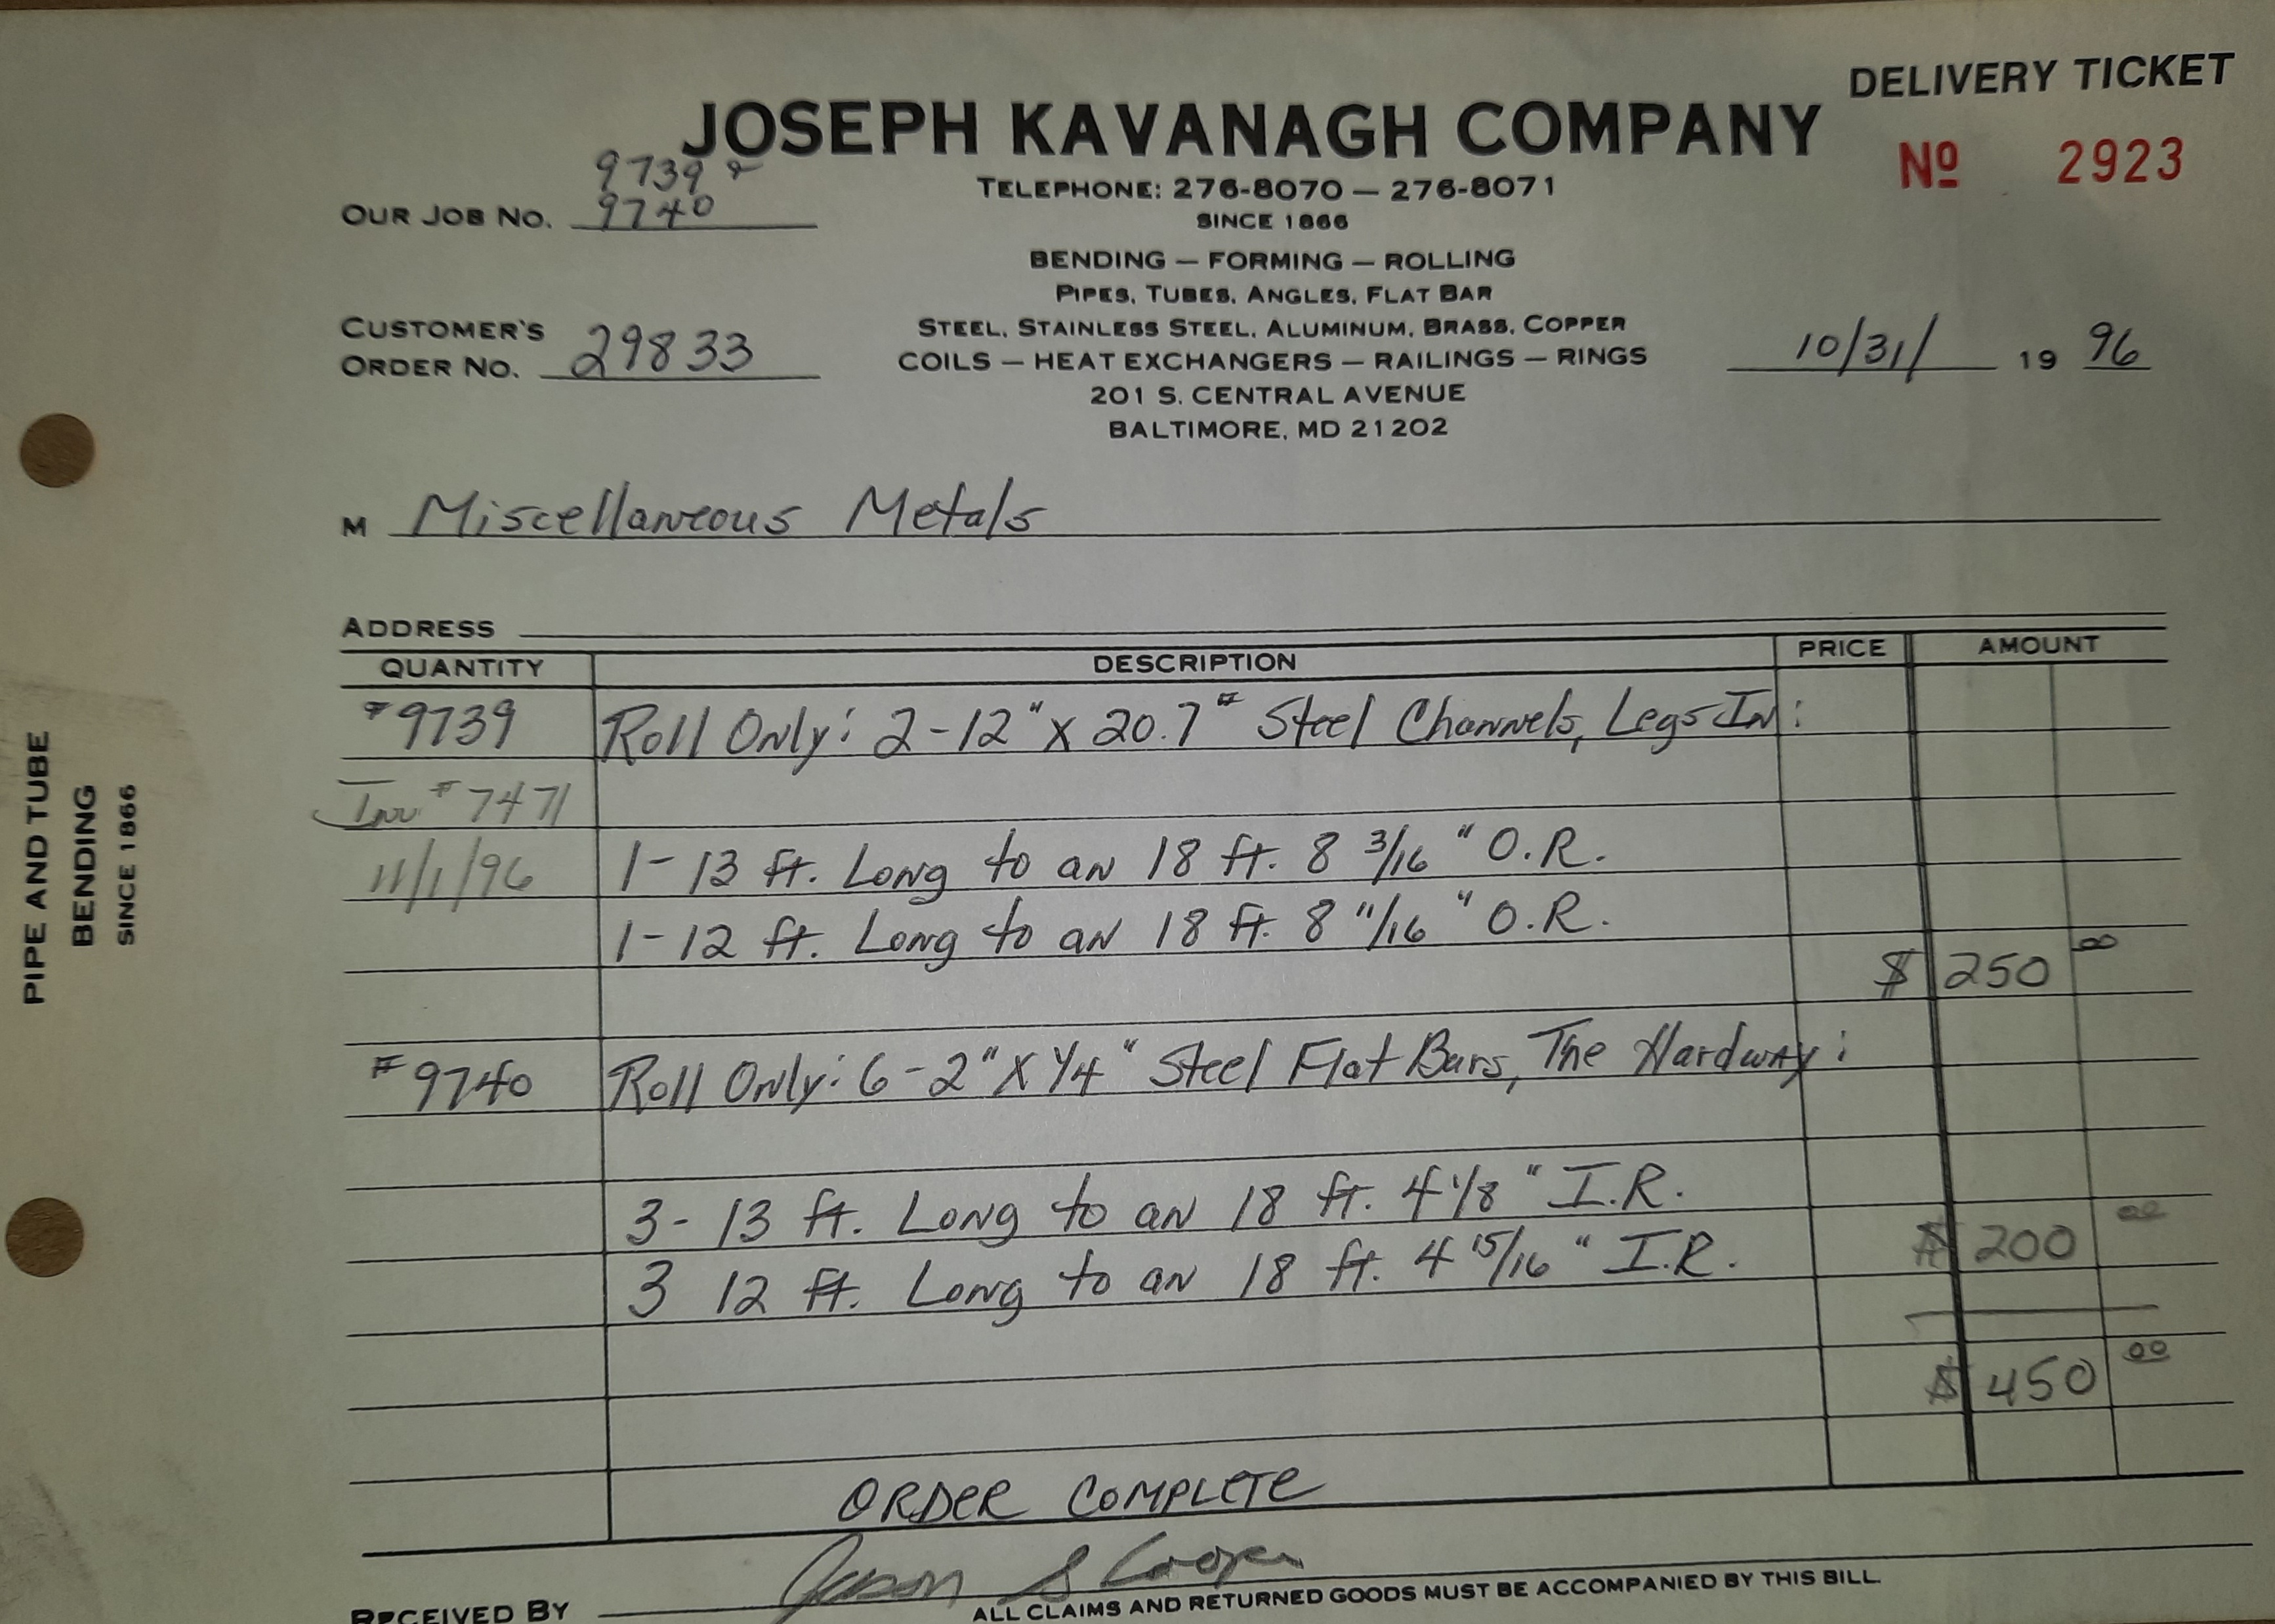 DELIVERY TICKET
JOSEPH KAVANAGH COMPANY
Nº 2923
9739 &
OUR JOB NO. 9740
TELEPHONE: 276-8070 — 276-8071
SINCE 1866
BENDING — FORMING — ROLLING
PIPES, TUBES, ANGLES, FLAT BAR
CUSTOMER'S
ORDER NO. 29833
STEEL, STAINLESS STEEL, ALUMINUM, BRASS, COPPER
COILS — HEAT EXCHANGERS — RAILINGS — RINGS
10/31/ 19 96
201 S. CENTRAL AVENUE
BALTIMORE, MD 21202
M Miscellaneous Metals
ADDRESS
QUANTITY DESCRIPTION PRICE AMOUNT
#9739 Roll Only: 2-12" x 20.7# Steel Channels, Legs In:
Inv # 7471
11/1/96 1-13 ft. Long to an 18 ft. 8 3/16" O.R.
1-12 ft. Long to an 18 ft. 8 11/16" O.R.
$ 250 00
#9740 Roll Only: 6-2" x 1/4" Steel Flat Bars, The Hardway:
3- 13 ft. Long to an 18 ft. 4 1/8" I.R.
3 12 ft. Long to an 18 ft. 4 15/16" I.R. $ 200 00
$ 450 00
ORDER COMPLETE
RECEIVED BY Jason S Cooper
ALL CLAIMS AND RETURNED GOODS MUST BE ACCOMPANIED BY THIS BILL.
PIPE AND TUBE
BENDING
SINCE 1866